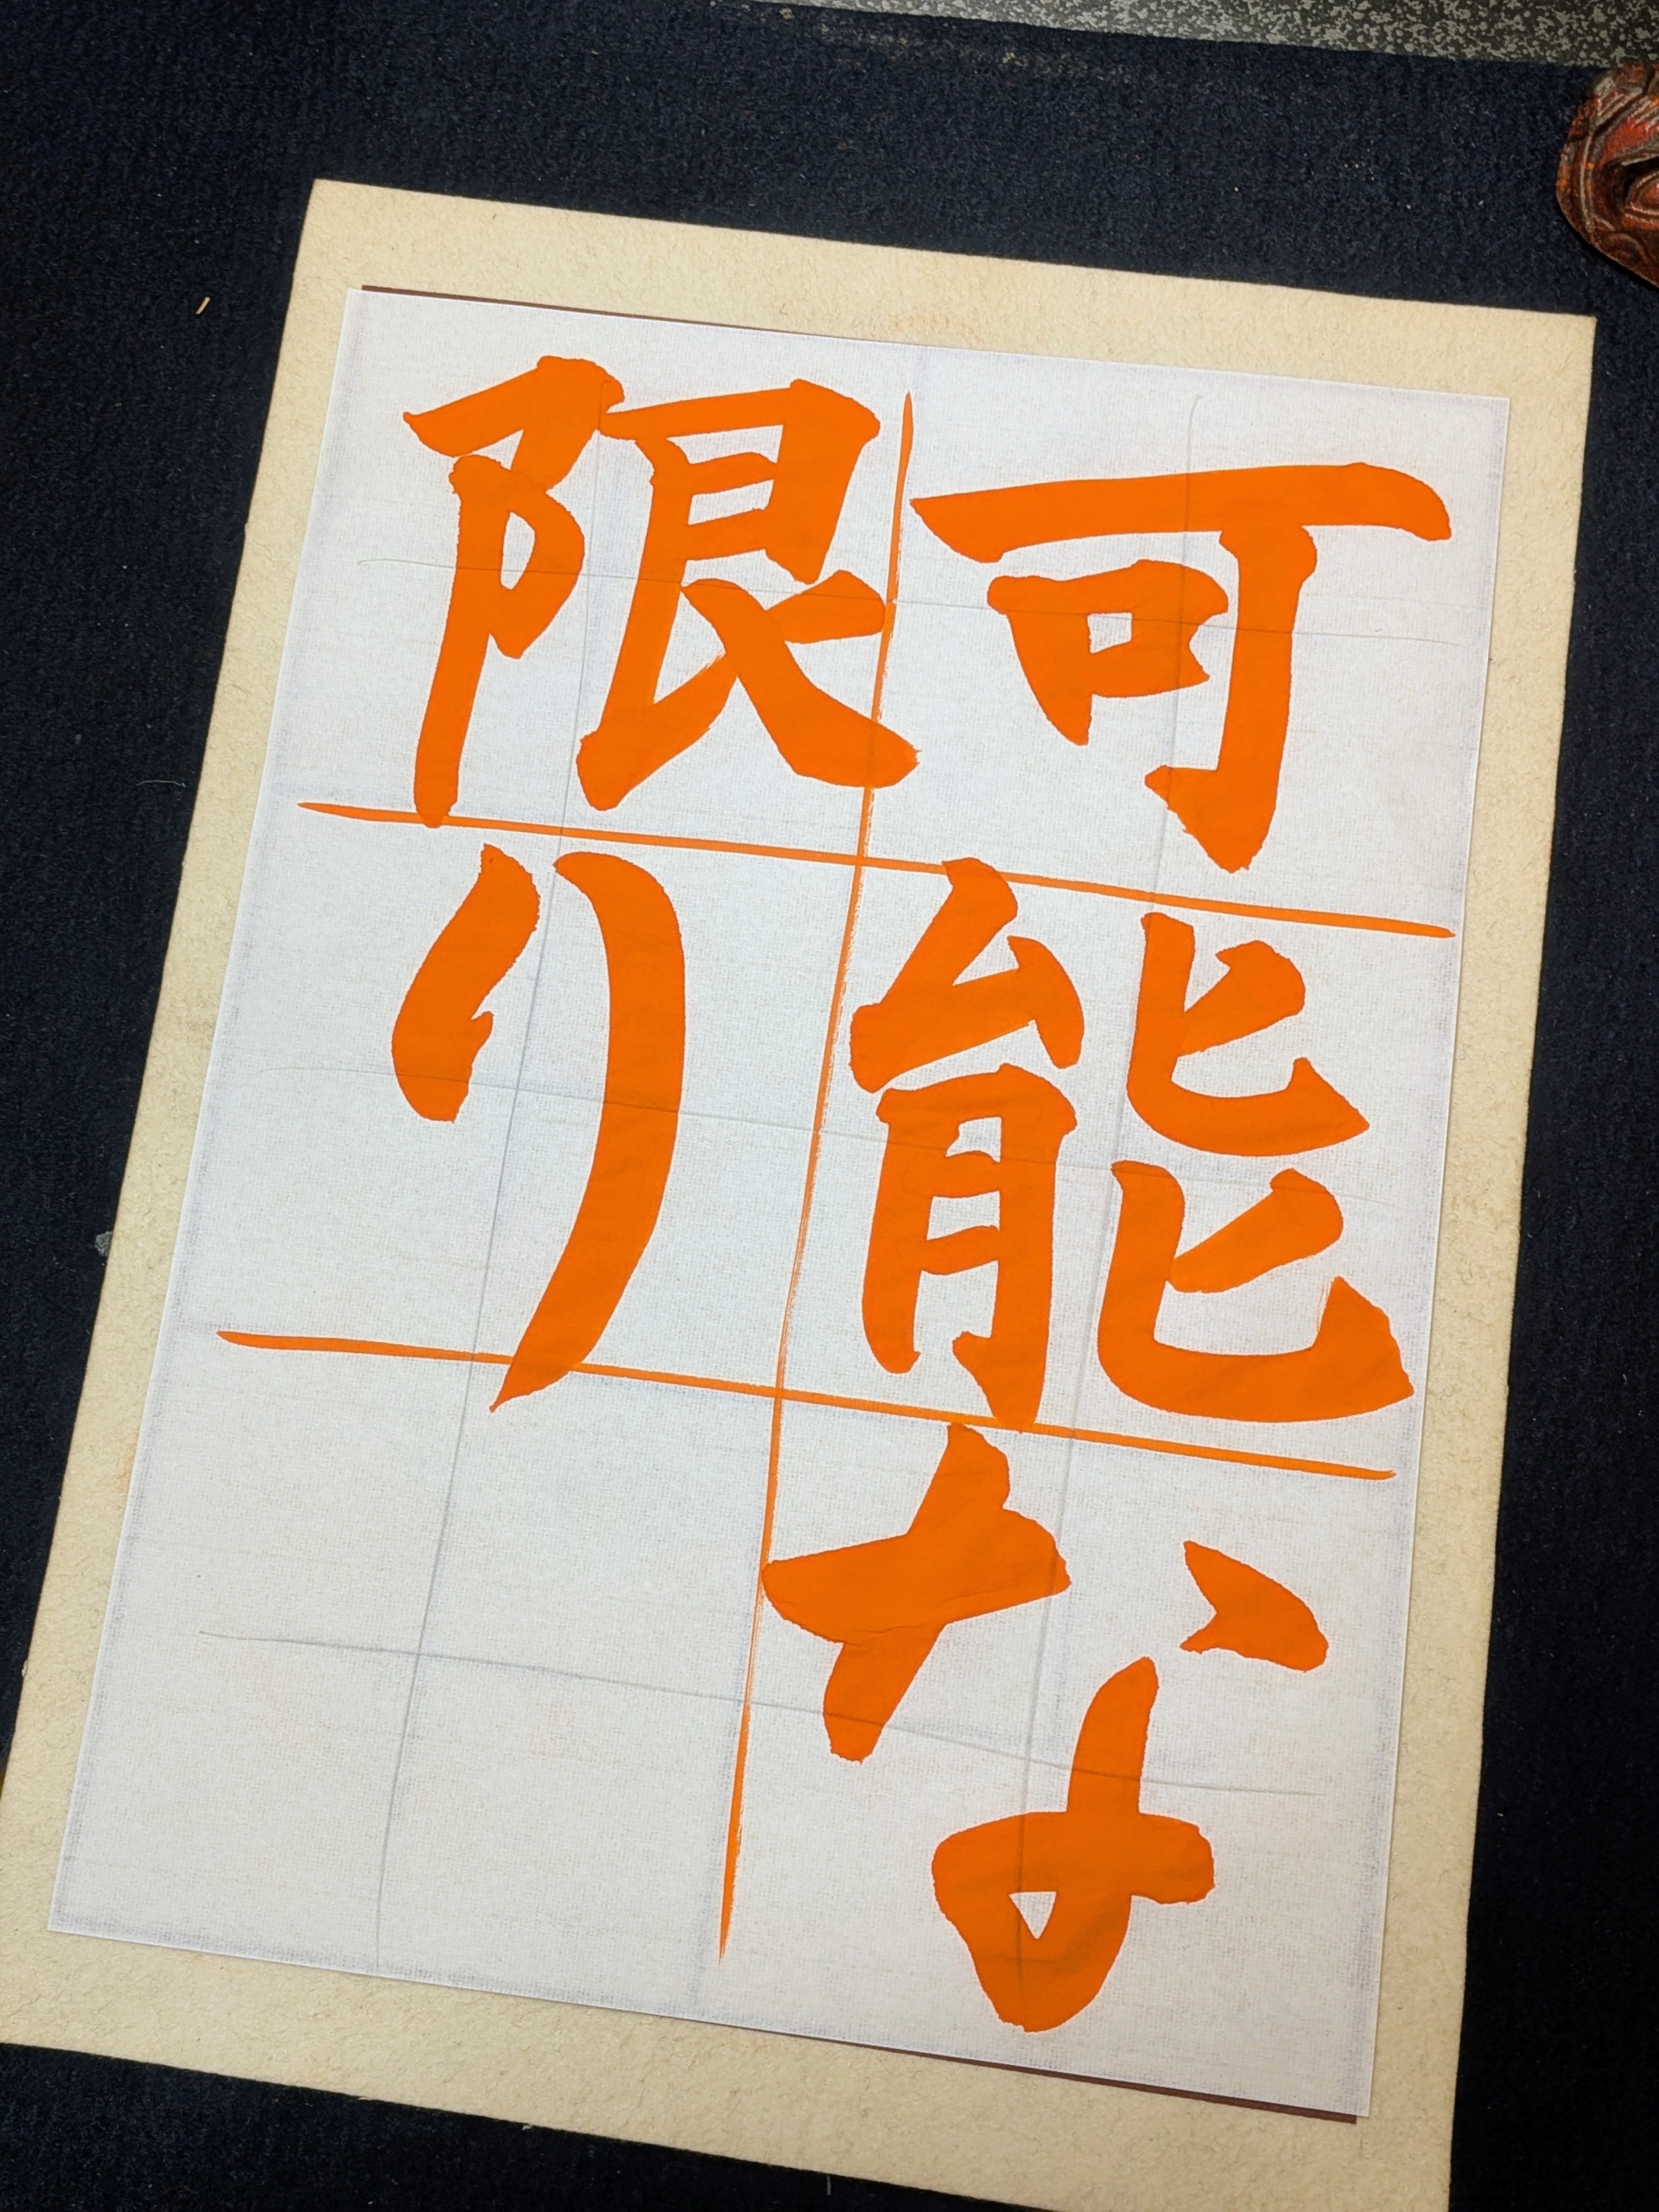 可能な
限り